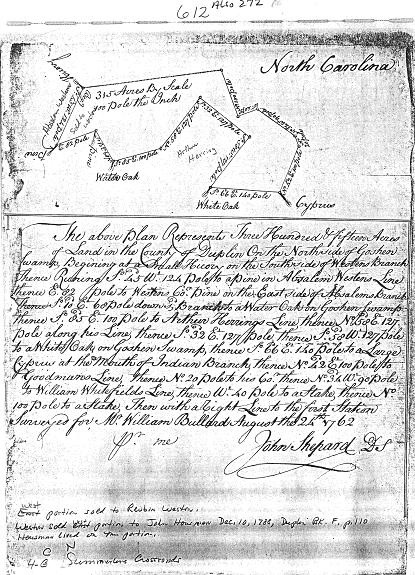 612 Also 272
North Carolina
315 Acres By Scale
100 pole the Inch
Arthur
Herring
Water Oak
So 66 E 140 pole
White Oak
Cyprus
The above plan Represents Three Hundred & fifteen Acres
of Land in the County of Duplin On the North side of Goshen
Swamp Begining at a Small Hicory on the South side of Westons Branch
thence Runing So 43 Wt 124 poles to a pine in Absalem Westons Line
thence E 82 poles to Westons Co. pine on the East side of Absalems Branch
thence So 20 E 60 poles down ye Branch to a Water Oak on Goshen Swamp
thence So 85 E 100 poles to Arthur Herrings Line, thence No 58 E 127
pole along his Line, thence So 32 E 127 pole, thence So 58 Wt 127 pole
to a White Oak on Goshen Swamp, thence So 66 E 140 pole to a Large
Cyprus at the Mouth of Indian Branch, thence No 42 E 100 poles to
Goodmans Line, thence No 20 pole to his Co. thence No 34 Wt 90 poles
to William Whitefields Line, thence Wt 40 poles to a Stake, thence No
100 poles to a Stake, Then with a Right Line to the first Station
Surveyed for Mr. William Bullard August the 24th 1762
Pr me
John Shepard DS
West
East portion sold to Reubin Weston.
Weston sold portion to John Houseman Dec. 10, 1788, Duplin Bk. F, p. 110
Houseman lived on this portion.
C
4-B Summerlins Crossroads